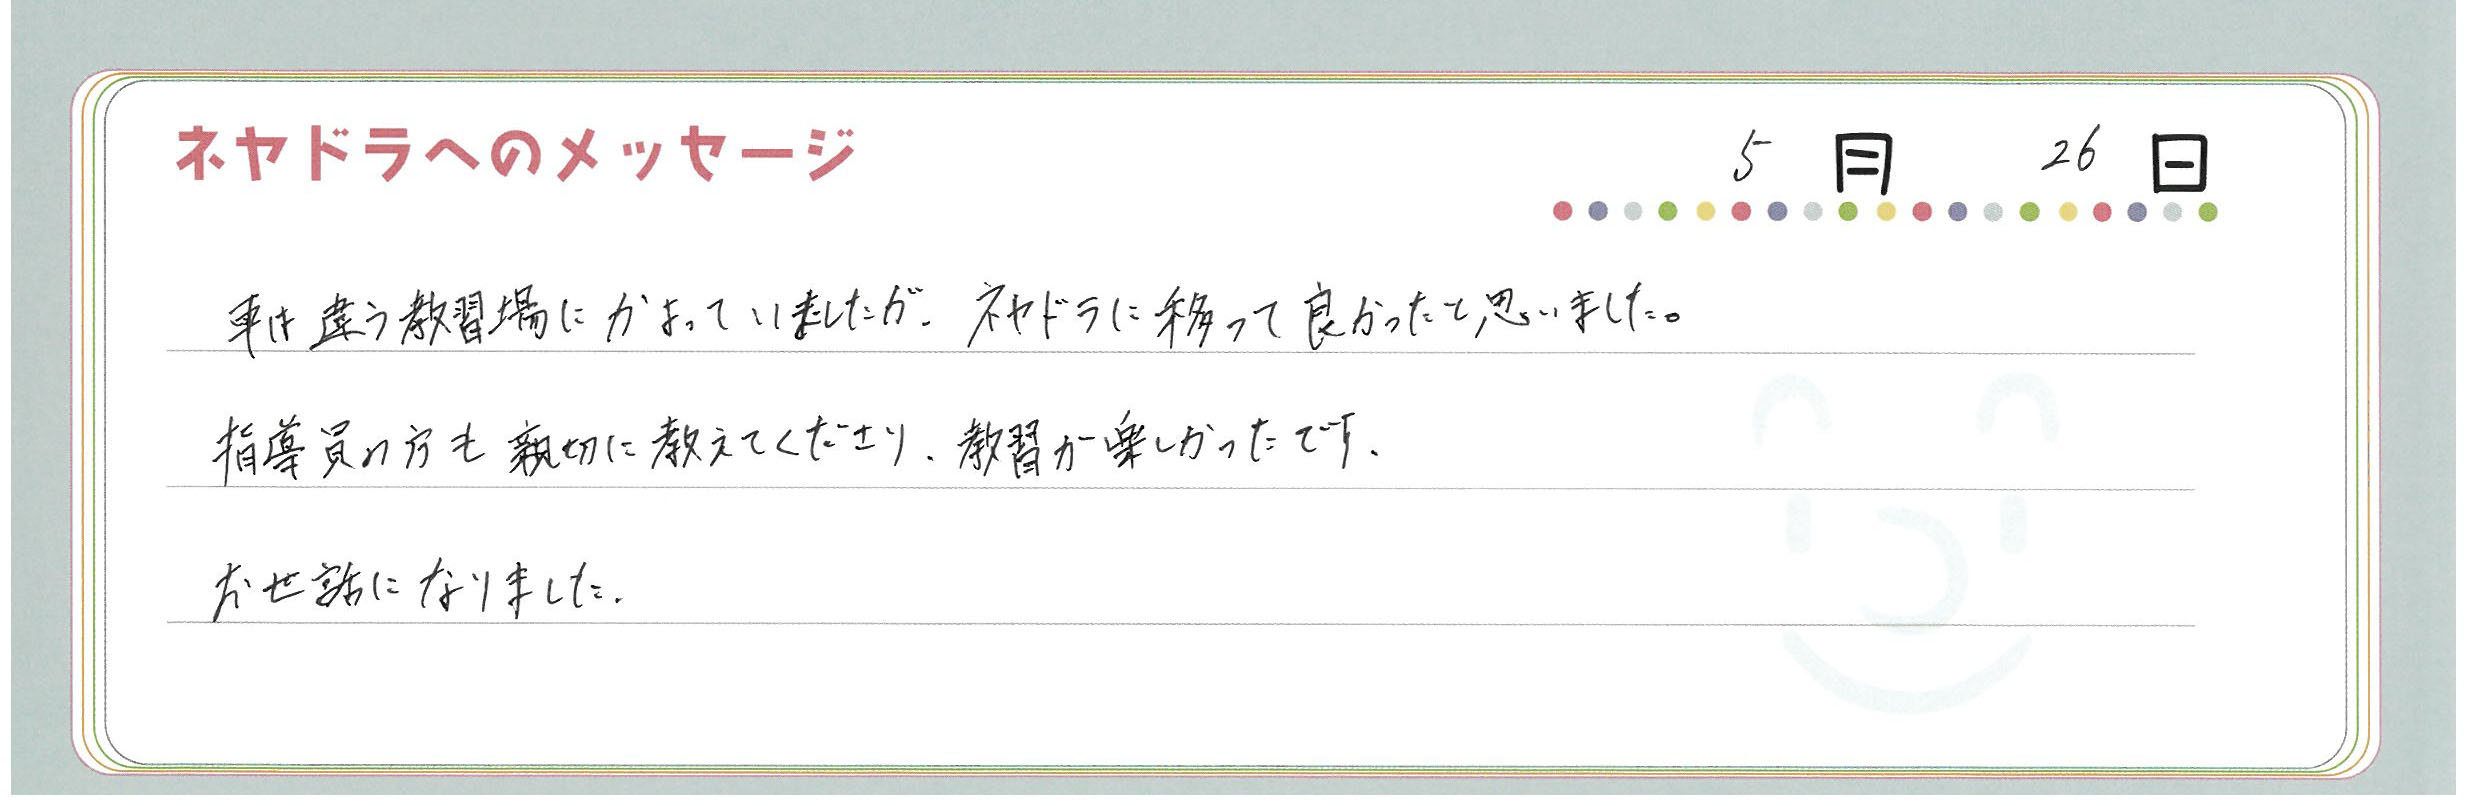 ネヤドラへのメッセージ
5月 26日
車は違う教習場にかよっていましたが、ネヤドラに移って良かったと思いました。
指導員の方も親切に教えてくださり、教習が楽しかったです。
お世話になりました。